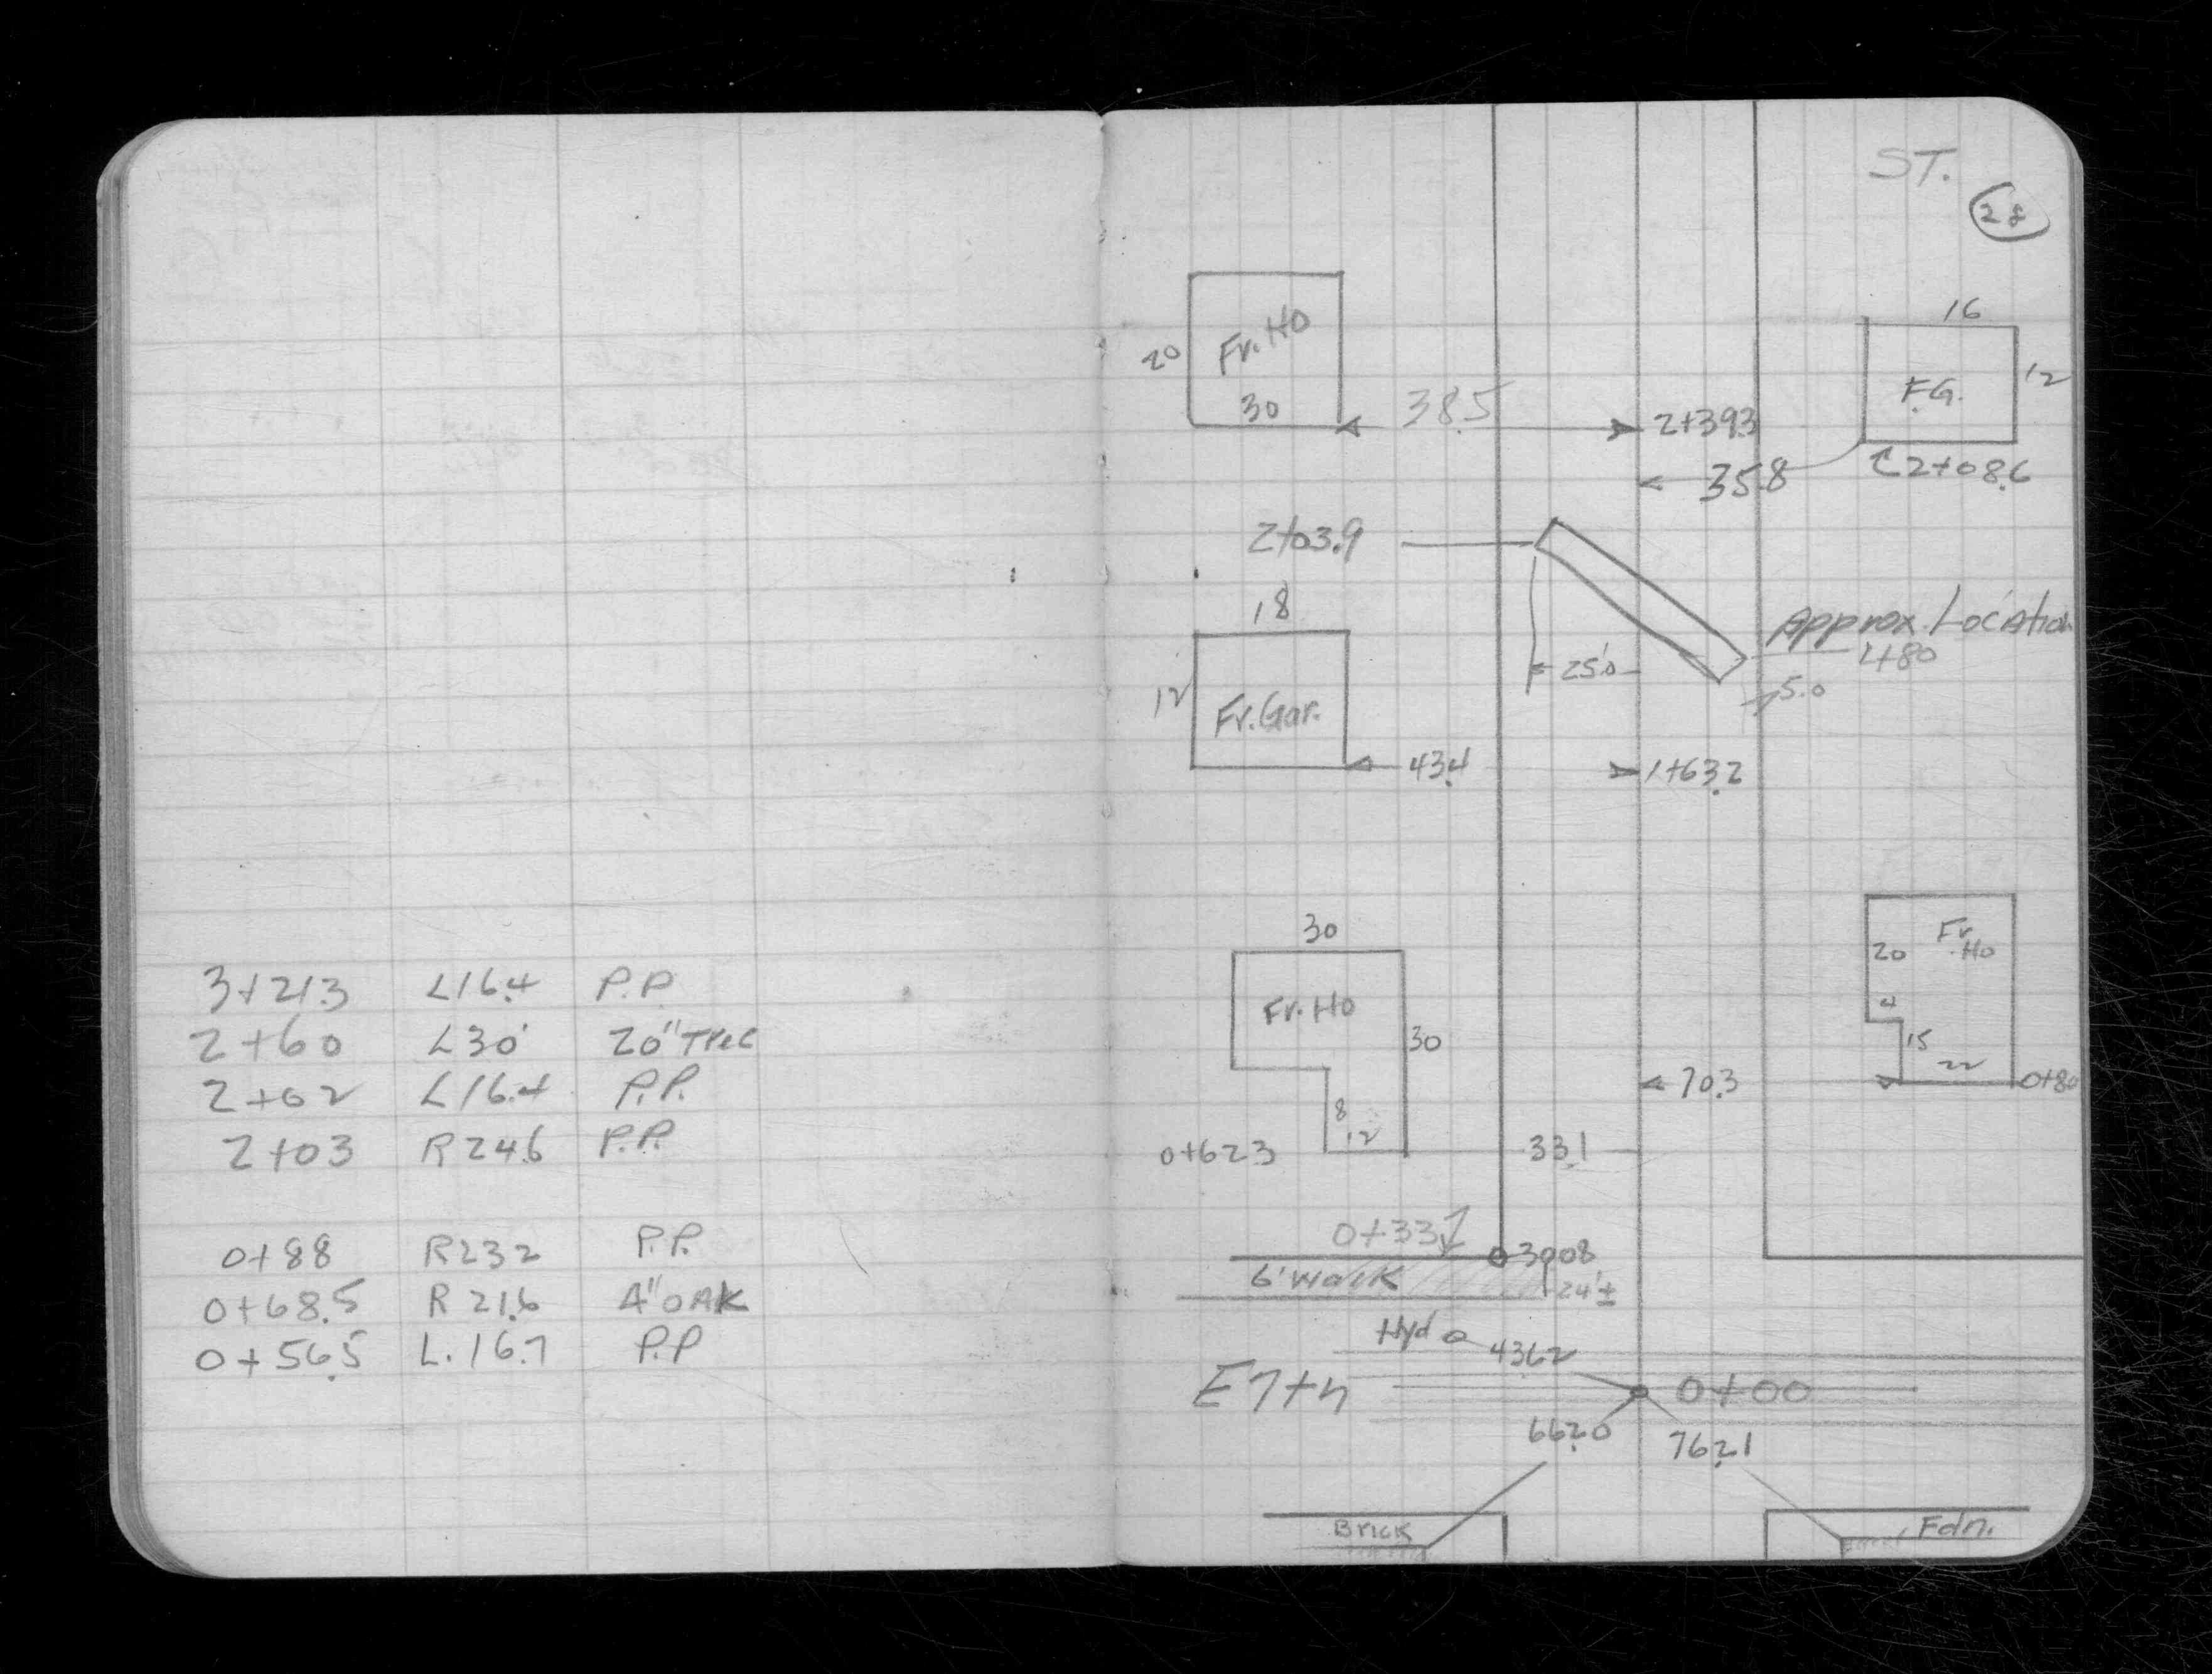 3+21.3 L16.4 P.P.
2+60 L30' 20" Tree
2+02 L16.4 P.P.
2+03 R24.6 P.P.
0+88 R23.2 P.P.
0+68.5 R21.6 4" OAK
0+56.5 L.16.7 P.P
ST.
28
16
Fr. Ho
20
30
38.5
2+39.3
F.G.
12
35.8
2+08.6
2+03.9
18
Approx. Location
1+80
25.0
5.0
12
Fr. Gar.
43.4
1+63.2
30
Fr. Ho
20
4
Fr. Ho
30
15
22
70.3
0+80
8
12
0+62.3
33.1
0+33
39.08
6' Walk
24'±
Hyd
43.62
0+00
66.20
76.21
Brick
Fdn.